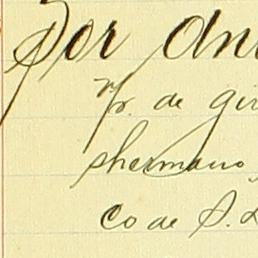 Por an
n/r. de gir
shermano
Co de S.